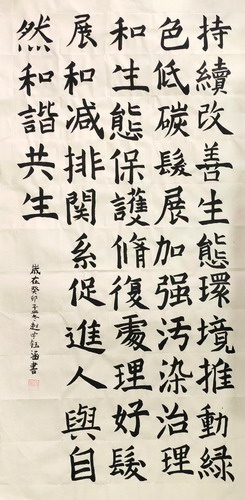 持續改善生態環境推動綠
色低碳髮展加强汚染治理
和生態保護脩復處理好髮
展和減排関系促進人與自
然和諧共生
歲在癸卯孟冬赵